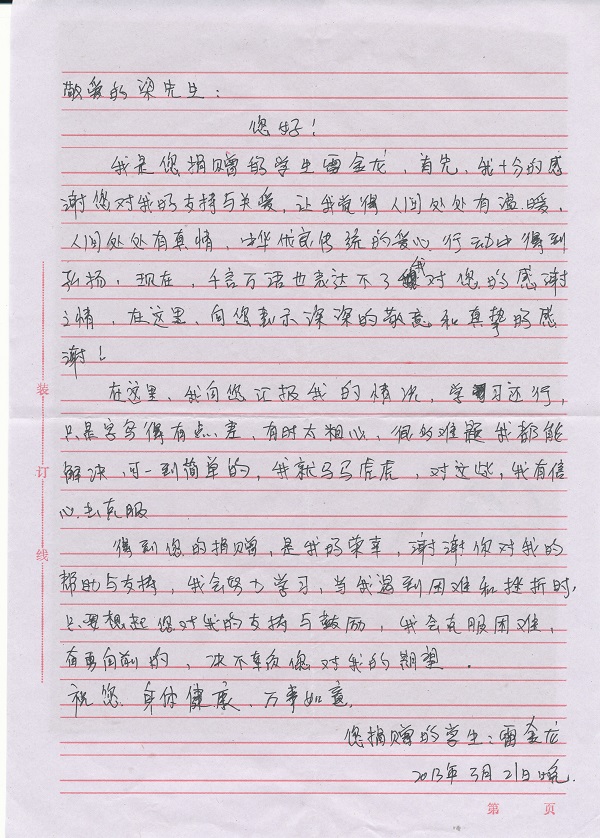 敬爱的梁先生：
您好！
我是您捐赠的学生雷金龙，首先，我十分的感
谢您对我的支持与关爱，让我觉得人间处处有温暖，
人间处处有真情，中华优良传统的爱心行动中得到
弘扬，现在，千言万语也表达不了我对您的感谢
之情，在这里，向您表示深深的敬意和真挚的感
谢！
在这里，我向您汇报我的情况，学习还行，
只是字写得有点差，有时太粗心，很多难题我都能
解决，可一到简单的，我就马马虎虎，对这些，我有信
心去克服
得到您的捐赠，是我的荣幸，谢谢你对我的
帮助与支持，我会努力学习，当我遇到困难和挫折时，
只要想起您对我的支持与鼓励，我会克服困难，
奋勇向前的，决不辜负您对我的期望．
祝您 身体健康，万事如意，
您捐赠的学生：雷金龙
2013年3月21日晚．
装
订
线
第 页